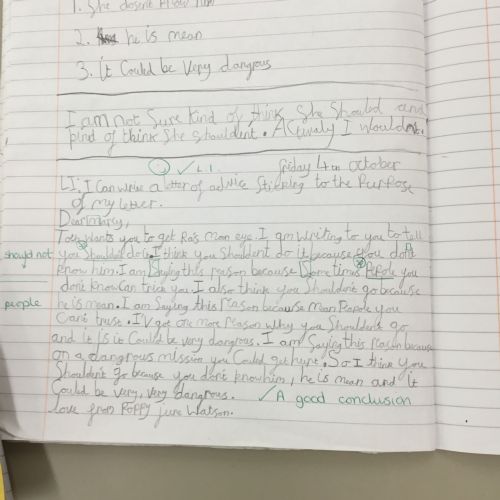 1. She dosent know him
2. he is mean
3. it Could be very dangrous
I am not Sure kind of think She Should and
kind of think She Shouldent. Activaly I would
✓ L.I. friday 4th october
LI: I Can write a letter of advice Sticking to the Purpose
of my letter.
Dear marcy,
wants you to get Ra's moon eye. I am writing to you to tell
should not you Shouldent do it. I think you Shouldent do it because you dont
know him. I am Saying this reason because Some times Pepole you
dont know Can trick you. I also think you Shouldent go because
people he is mean. I am Saying this reason because mean Pepole you
Cant trust. I've got one more Reason why you Shouldent go
and it is it Could be very dangrous. I am Saying this reason because
on a dangrous mission you Could get hurt. So I think you
Shouldent go because you dont know him, he is mean and it
Could be very, very dangrous. ✓ A good conclusion
love from Poppy June Watson.